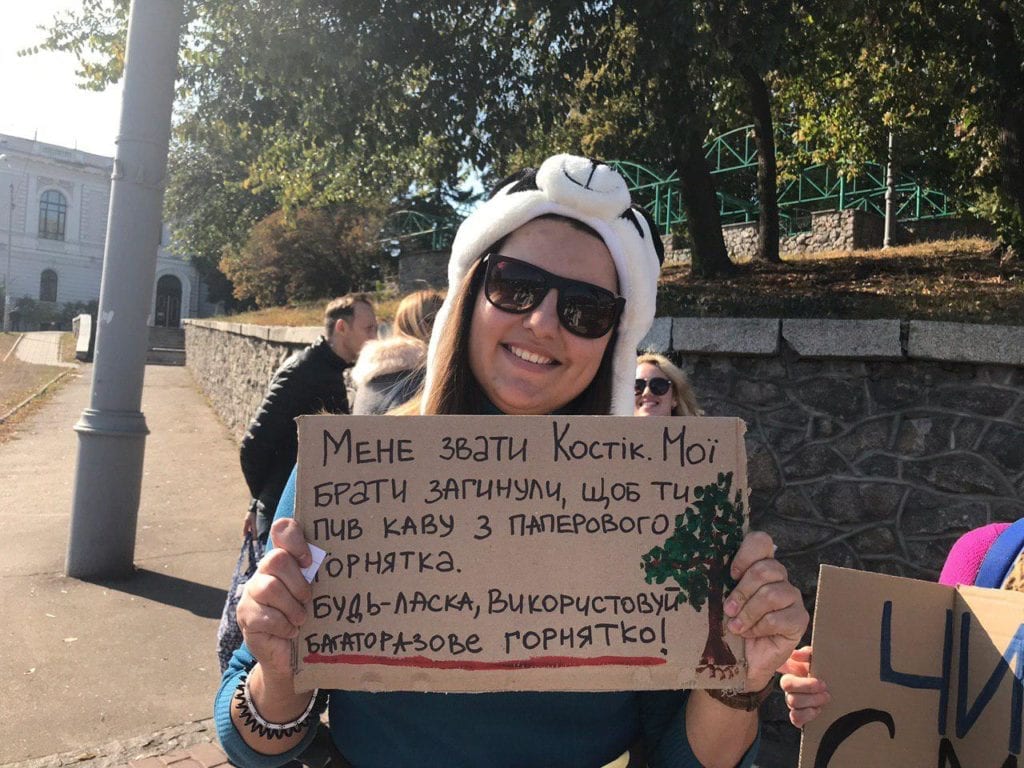 Мене звати Костік. Мої
брати загинули, щоб ти
пив каву з паперового
горнятка.
Будь-ласка, використовуй
багаторазове горнятко!
ЧИ
С